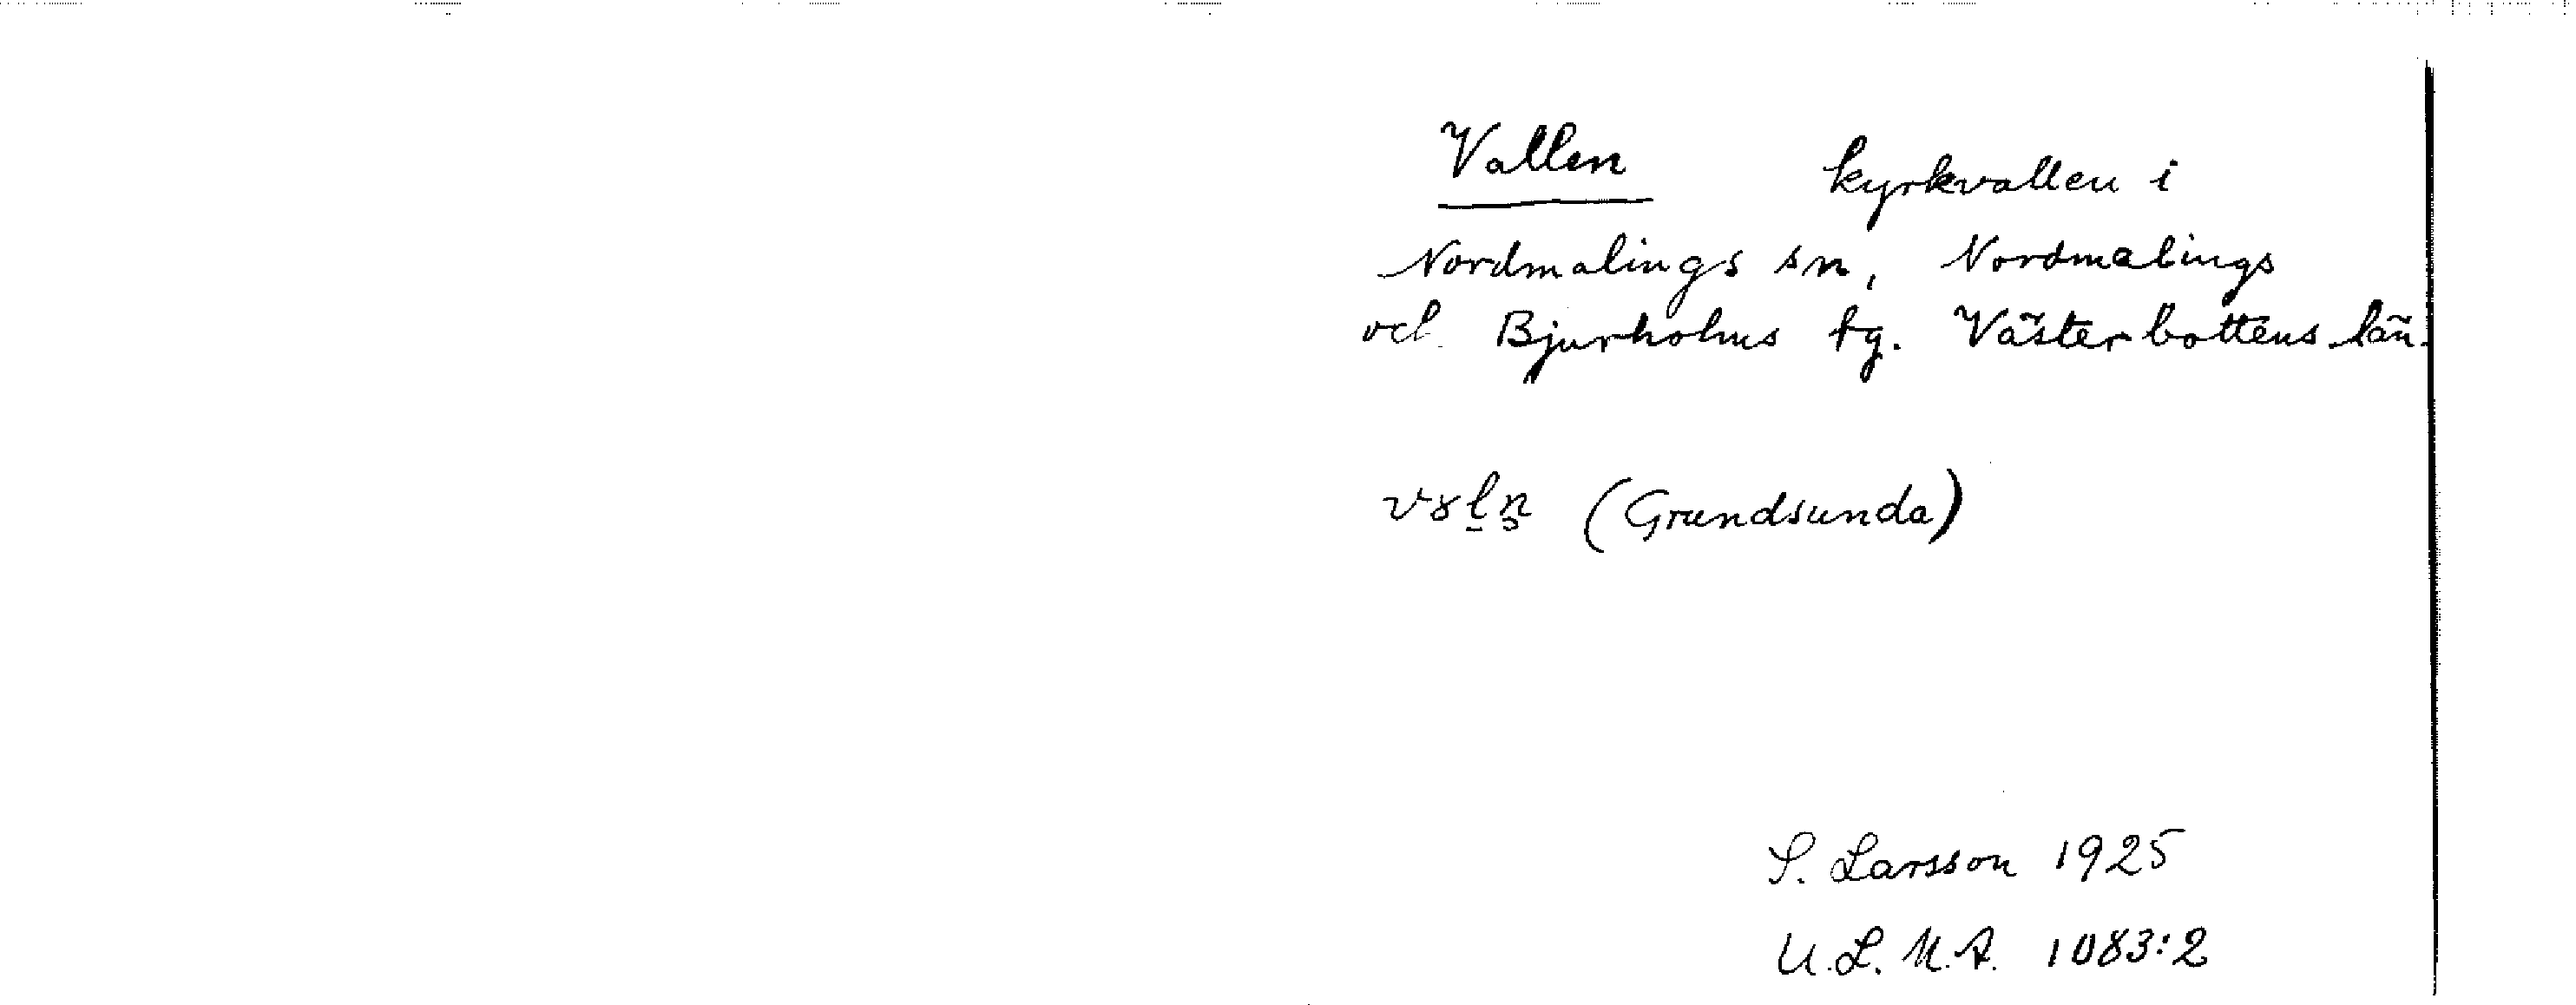 Vallen kyrkvallen i
Nordmalings sn, Nordmalings
och Bjurholms tg. Västerbottens län.
vɤl̠n̥ (Grundsunda)
S. Larsson 1925
U.L.M.A. 1083:2